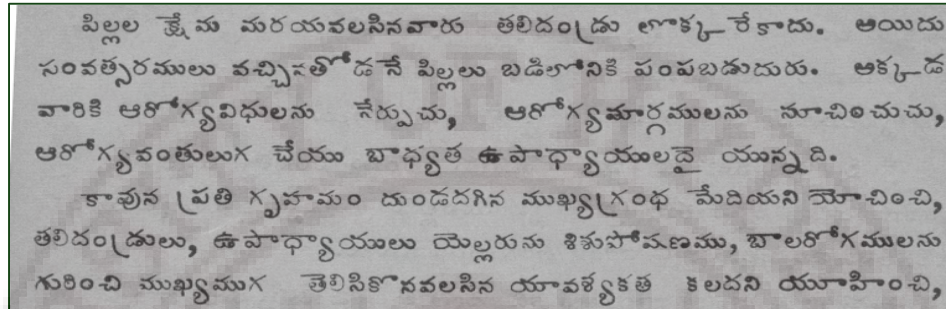 పిల్లల క్షేమ మరయవలసినవారు తలిదండ్రు లొక్క రేకాదు. ఆయిదు
సంవత్సరములు వచ్చినతోడ నే పిల్లలు బడిలోనికి పంపబడుదురు. ఆక్కడ
వారికి ఆరోగ్యవిధులను నేర్పుచు, ఆరోగ్యమార్గములను సూచించుచు,
ఆరోగ్యవంతులుగ చేయు బాధ్యత ఉపాధ్యాయులదై యున్నది.
కావున ప్రతి గృహమం దుండదగిన ముఖ్యగ్రంథ మేదియని యోచించి,
తలిదండ్రులు, ఉపాధ్యాయులు యెల్లరును శిశుపోషణము, బాలరోగములను
గురించి ముఖ్యముగ తెలిసికొనవలసిన యావశ్యకత కలదని యూహించి,